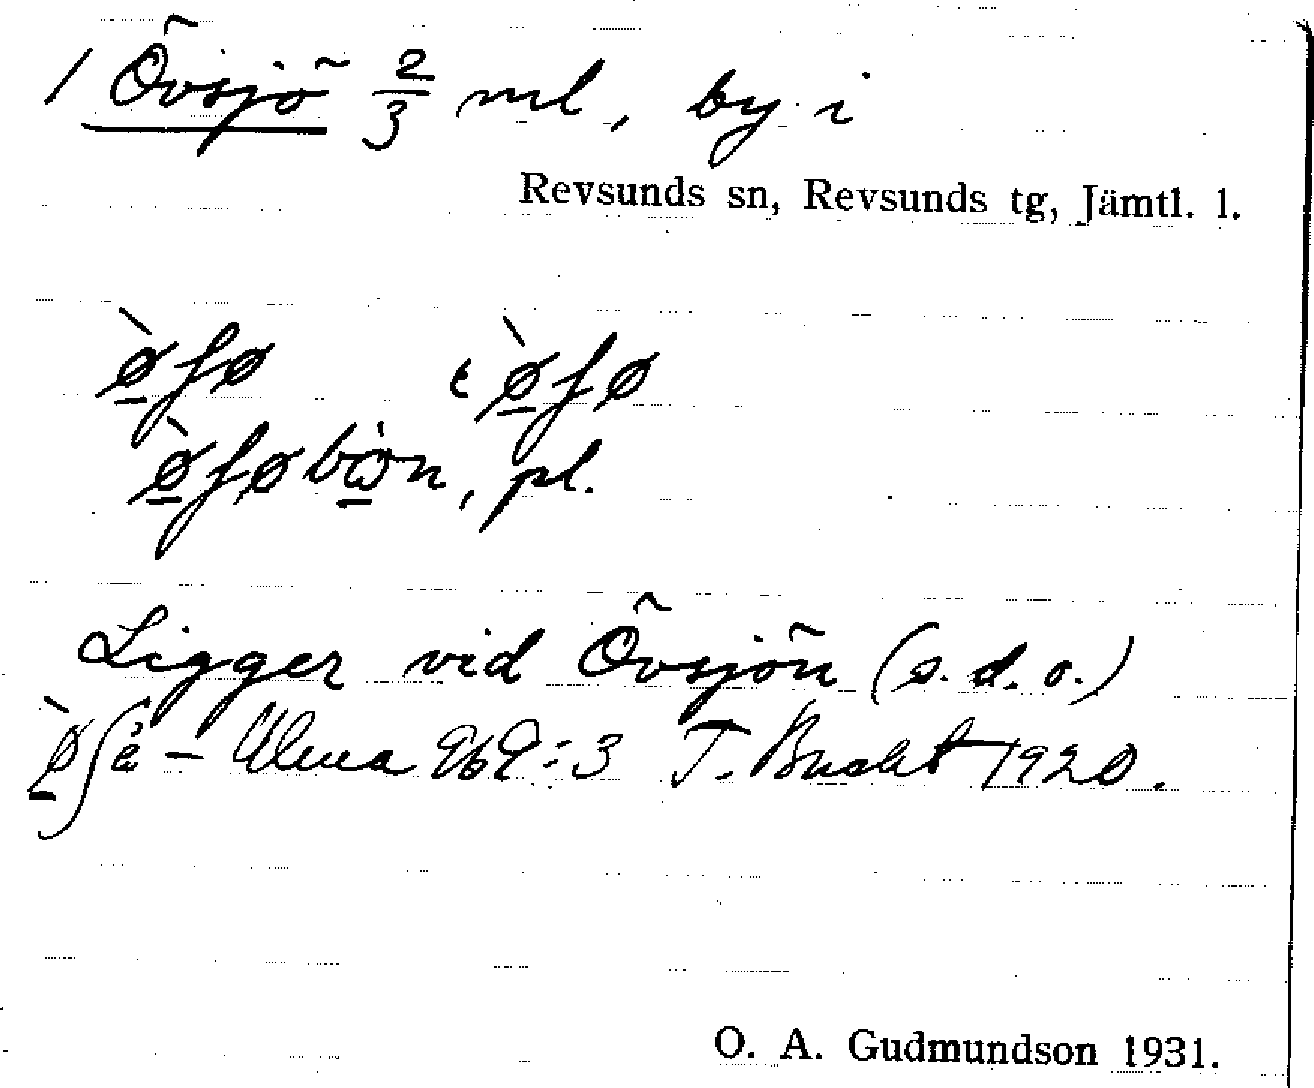 1 Övsjö 2/3 ml, by i
Revsunds sn, Revsunds tg, Jämtl. l.
Ligger vid Övsjön (s.d.o.)
– Ulma 969:3 T. Bucht 1920.
O. A. Gudmundson 1931.